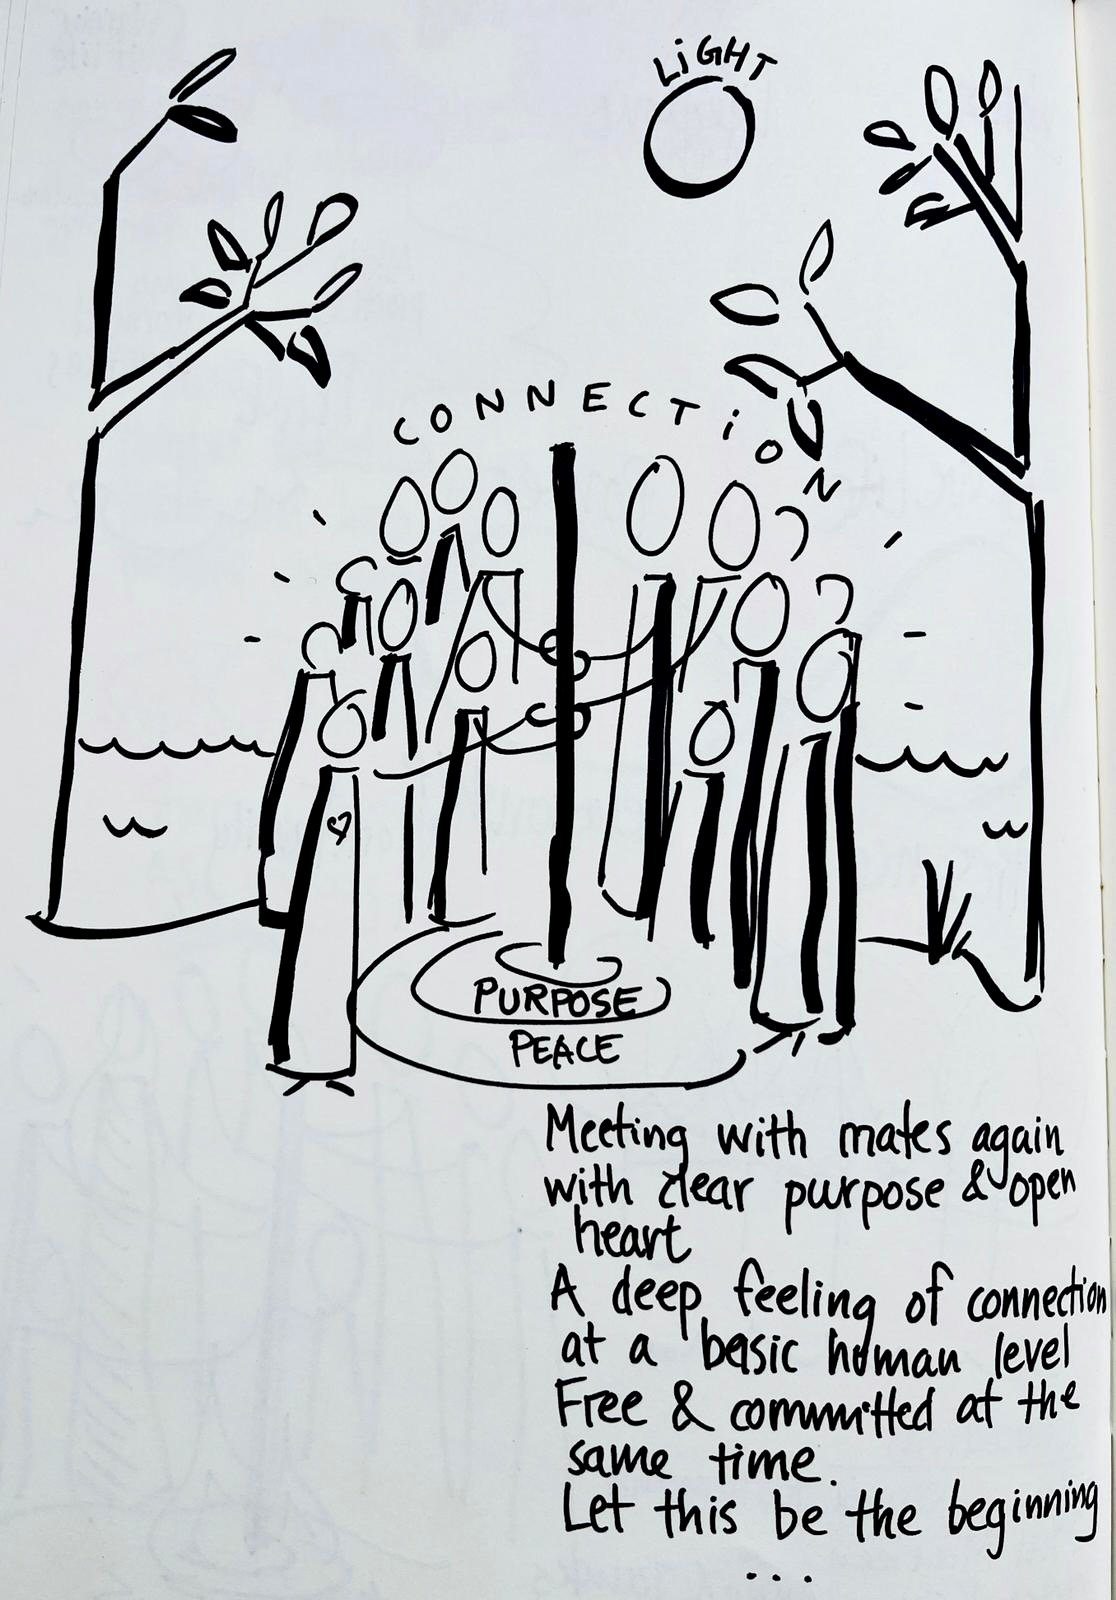 LiGHT
CONNECTiON
PURPOSE
PEACE
Meeting with mates again
with clear purpose & open
heart
A deep feeling of connection
at a basic human level
Free & committed at the
same time.
Let this be the beginning
...